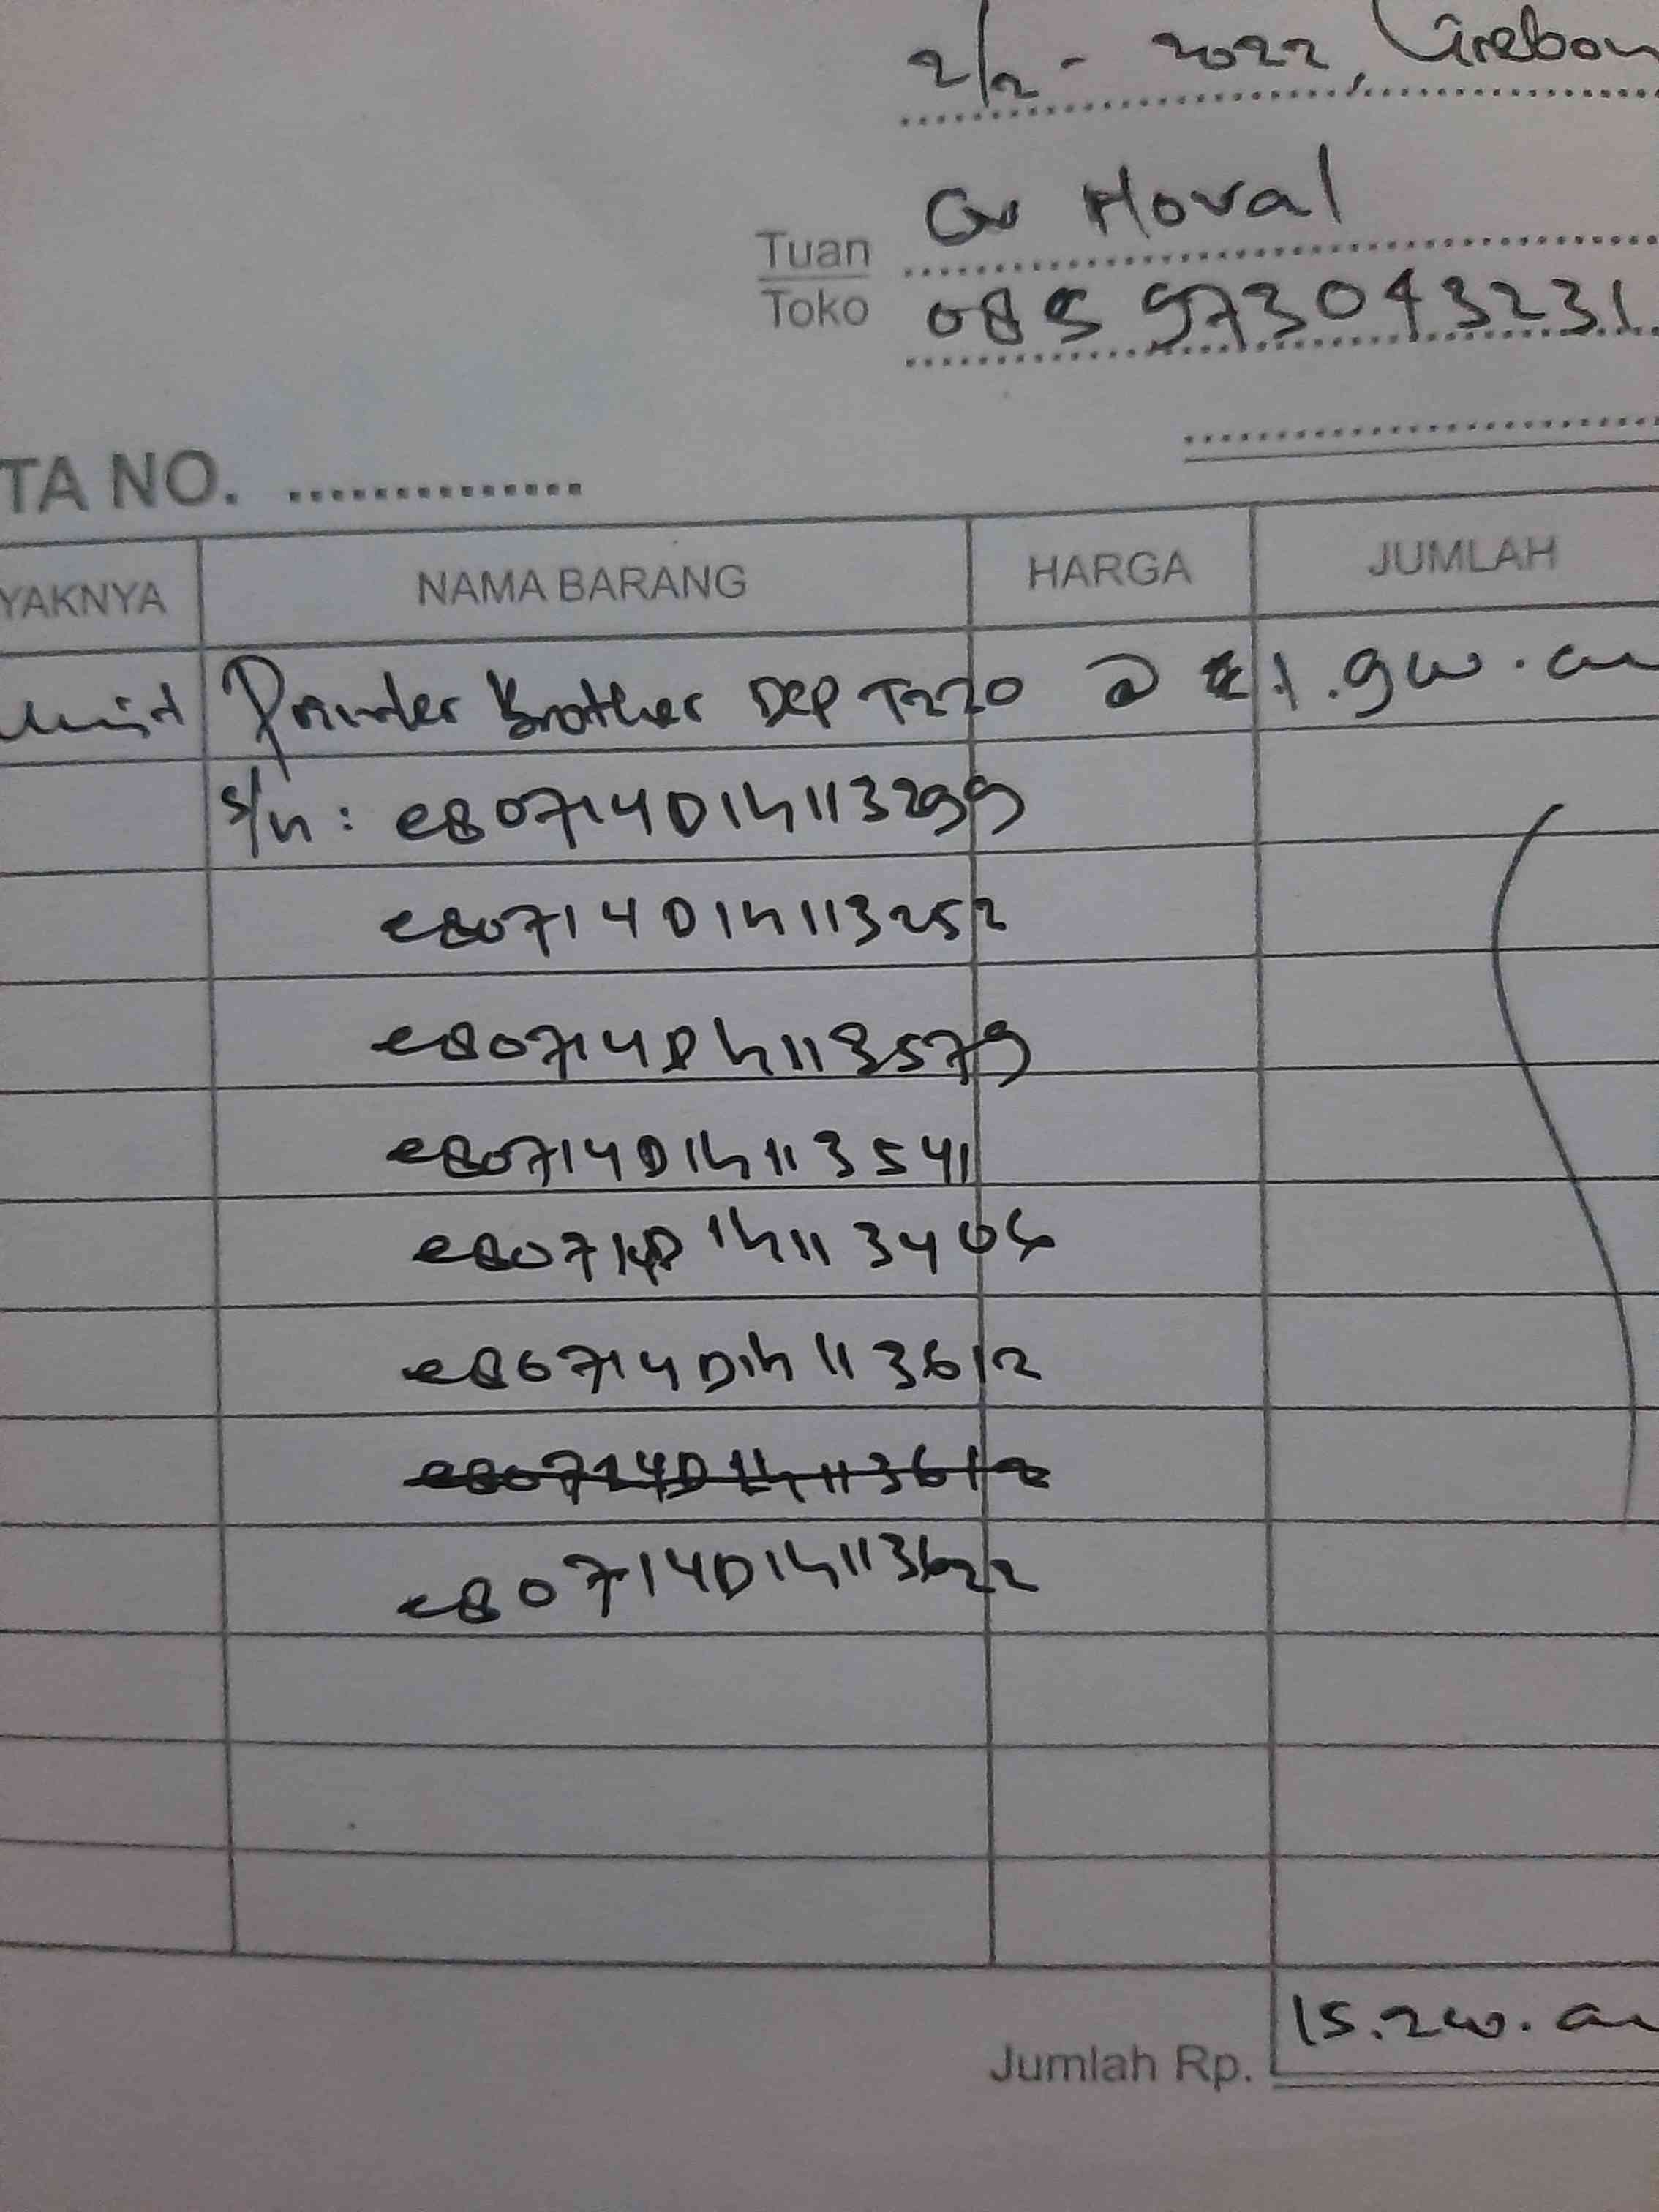 2/2 - 2022, Cirebon
Tuan
Toko
CV Noval
085 973043231
TA NO. ..............
YAKNYA NAMA BARANG HARGA JUMLAH
unit Printer Brother DCP T220 @ 1.900.000
S/n : E80714D1H113299
E80714D1H113252
E80714DH113579
E80714D1H113541
E80714D1H113406
E80714D1H113612
E80714D1H113612
E80714D1H113622
Jumlah Rp. 15.200.000